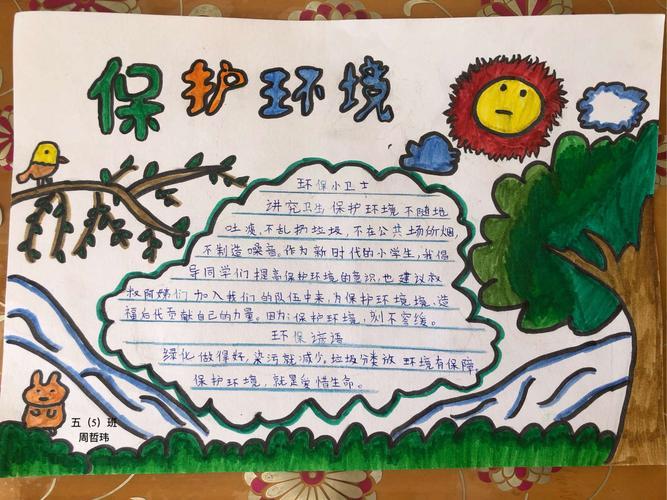 保护环境
环保小卫士
讲究卫生保护环境不随地
吐痰,不乱扔垃圾,不在公共场所烟
不制造噪音。作为新时代的小学生,我倡
导同学们提高保护环境的意识,也建议叔
叔阿姨们加入我们的队伍中来,为保护环境境,造
福后代贡献自己的力量。因为:保护环境,刻不容缓。
环保标语
绿化做得好,染污就减少。垃圾分类放 环境有保障,
保护环境,就是爱惜生命。
五(5)班
周哲玮